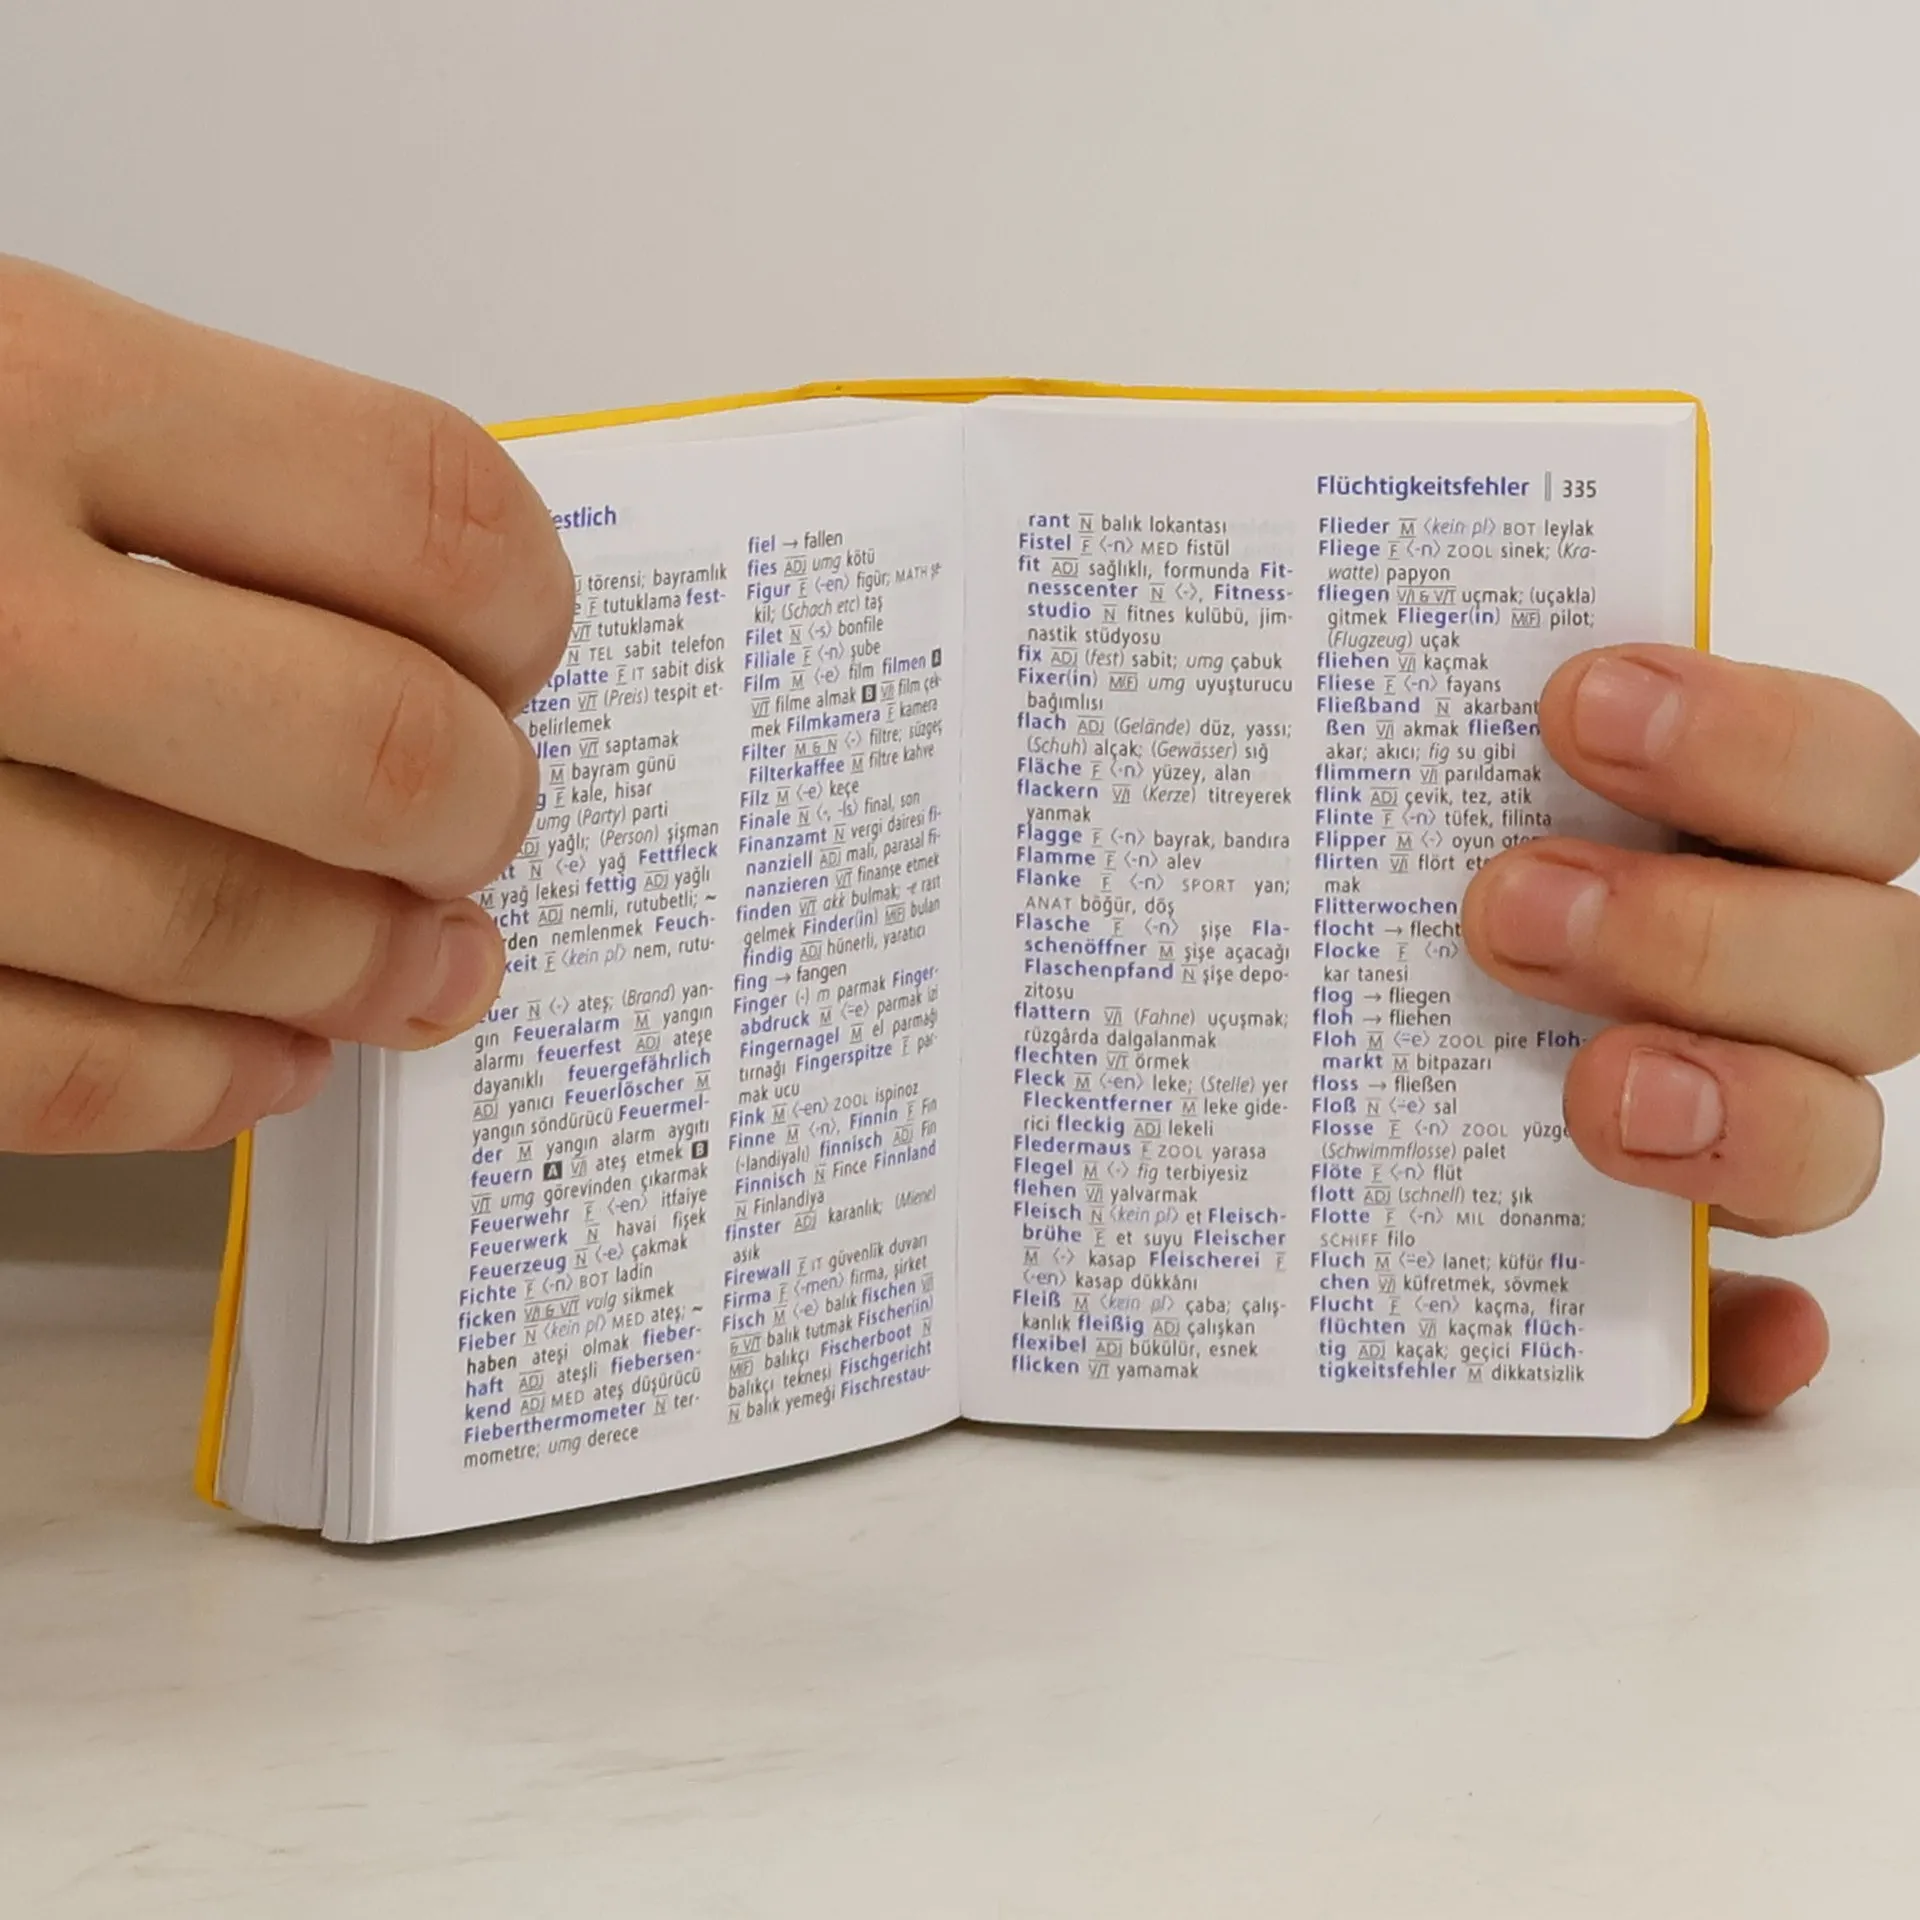 estlich
törensi; bayramlık
F tutuklama fest-
V/T tutuklamak
N TEL sabit telefon
platte F IT sabit disk
etzen V/T (Preis) tespit et-
belirlemek
llen V/T saptamak
M bayram günü
g F kale, hisar
umg (Party) parti
ADJ yağlı; (Person) şişman
tt N ⟨-e⟩ yağ Fettfleck
M yağ lekesi fettig ADJ yağlı
ucht ADJ nemli, rutubetli; ~
rden nemlenmek Feuch-
keit F ⟨kein pl⟩ nem, rutu-
euer N ⟨-⟩ ateş; (Brand) yan-
gın Feueralarm M yangın
alarmı feuerfest ADJ ateşe
dayanıklı feuergefährlich
ADJ yanıcı Feuerlöscher M
yangın söndürücü Feuermel-
der M yangın alarm aygıtı
feuern A V/I ateş etmek B
V/T umg görevinden çıkarmak
Feuerwehr F ⟨-en⟩ itfaiye
Feuerwerk N havai fişek
Feuerzeug N ⟨-e⟩ çakmak
Fichte F ⟨-n⟩ BOT ladin
ficken V/I & V/T vulg sikmek
Fieber N ⟨kein pl⟩ MED ateş; ~
haben ateşi olmak fieber-
haft ADJ ateşli fiebersen-
kend ADJ MED ateş düşürücü
Fieberthermometer N ter-
mometre; umg derece
fiel → fallen
fies ADJ umg kötü
Figur F ⟨-en⟩ figür; MATH şe-
kil; (Schach etc) taş
Filet N ⟨-s⟩ bonfile
Filiale F ⟨-n⟩ şube
Film M ⟨-e⟩ film filmen A
V/T filme almak B V/I film çek-
mek Filmkamera F kamera
Filter M & N ⟨-⟩ filtre; süzgeç
Filterkaffee M filtre kahve
Filz M ⟨-e⟩ keçe
Finale N ⟨-, -(s)⟩ final, son
Finanzamt N vergi dairesi fi-
nanziell ADJ mali, parasal fi-
nanzieren V/T finanse etmek
finden V/T akk bulmak; -e rast
gelmek Finder(in) M(F) bulan
findig ADJ hünerli, yaratıcı
fing → fangen
Finger ⟨-⟩ m parmak Finger-
abdruck M ⟨=e⟩ parmak izi
Fingernagel M el parmağı
tırnağı Fingerspitze F par-
mak ucu
Fink M ⟨-en⟩ ZOOL ispinoz
Finne M ⟨-n⟩, Finnin F Fin
(-landiyalı) finnisch ADJ Fin
Finnisch N Fince Finnland
N Finlandiya
finster ADJ karanlık; (Miene)
asık
Firewall F IT güvenlik duvarı
Firma F ⟨-men⟩ firma, şirket
Fisch M ⟨-e⟩ balık fischen V/I
& V/T balık tutmak Fischer(in)
M(F) balıkçı Fischerboot N
balıkçı teknesi Fischgericht
N balık yemeği Fischrestau-
Flüchtigkeitsfehler || 335
rant N balık lokantası
Fistel F ⟨-n⟩ MED fistül
fit ADJ sağlıklı, formunda Fit-
nesscenter N ⟨-⟩, Fitness-
studio N fitnes kulübü, jim-
nastik stüdyosu
fix ADJ (fest) sabit; umg çabuk
Fixer(in) M(F) umg uyuşturucu
bağımlısı
flach ADJ (Gelände) düz, yassı;
(Schuh) alçak; (Gewässer) sığ
Fläche F ⟨-n⟩ yüzey, alan
flackern V/I (Kerze) titreyerek
yanmak
Flagge F ⟨-n⟩ bayrak, bandıra
Flamme F ⟨-n⟩ alev
Flanke F ⟨-n⟩ SPORT yan;
ANAT böğür, döş
Flasche F ⟨-n⟩ şişe Fla-
schenöffner M şişe açacağı
Flaschenpfand N şişe depo-
zitosu
flattern V/I (Fahne) uçuşmak;
rüzgârda dalgalanmak
flechten V/T örmek
Fleck M ⟨-en⟩ leke; (Stelle) yer
Fleckentferner M leke gide-
rici fleckig ADJ lekeli
Fledermaus F ZOOL yarasa
Flegel M ⟨-⟩ fig terbiyesiz
flehen V/I yalvarmak
Fleisch N ⟨kein pl⟩ et Fleisch-
brühe F et suyu Fleischer
M ⟨-⟩ kasap Fleischerei F
⟨-en⟩ kasap dükkânı
Fleiß M ⟨kein pl⟩ çaba; çalış-
kanlık fleißig ADJ çalışkan
flexibel ADJ bükülür, esnek
flicken V/T yamamak
Flieder M ⟨kein pl⟩ BOT leylak
Fliege F ⟨-n⟩ ZOOL sinek; (Kra-
watte) papyon
fliegen V/I & V/T uçmak; (uçakla)
gitmek Flieger(in) M(F) pilot;
(Flugzeug) uçak
fliehen V/I kaçmak
Fliese F ⟨-n⟩ fayans
Fließband N akarbant
ßen V/I akmak fließen
akar; akıcı; fig su gibi
flimmern V/I parıldamak
flink ADJ çevik, tez, atik
Flinte F ⟨-n⟩ tüfek, filinta
Flipper M ⟨-⟩ oyun
flirten V/I flört
mak
Flitterwochen
flocht → flecht
Flocke F ⟨-n⟩
kar tanesi
flog → fliegen
floh → fliehen
Floh M ⟨=e⟩ ZOOL pire Floh-
markt M bitpazarı
floss → fließen
Floß N ⟨=e⟩ sal
Flosse F ⟨-n⟩ ZOOL yüzge
(Schwimmflosse) palet
Flöte F ⟨-n⟩ flüt
flott ADJ (schnell) tez; şık
Flotte F ⟨-n⟩ MIL donanma;
SCHIFF filo
Fluch M ⟨=e⟩ lanet; küfür flu-
chen V/I küfretmek, sövmek
Flucht F ⟨-en⟩ kaçma, firar
flüchten V/I kaçmak flüch-
tig ADJ kaçak; geçici Flüch-
tigkeitsfehler M dikkatsizlik